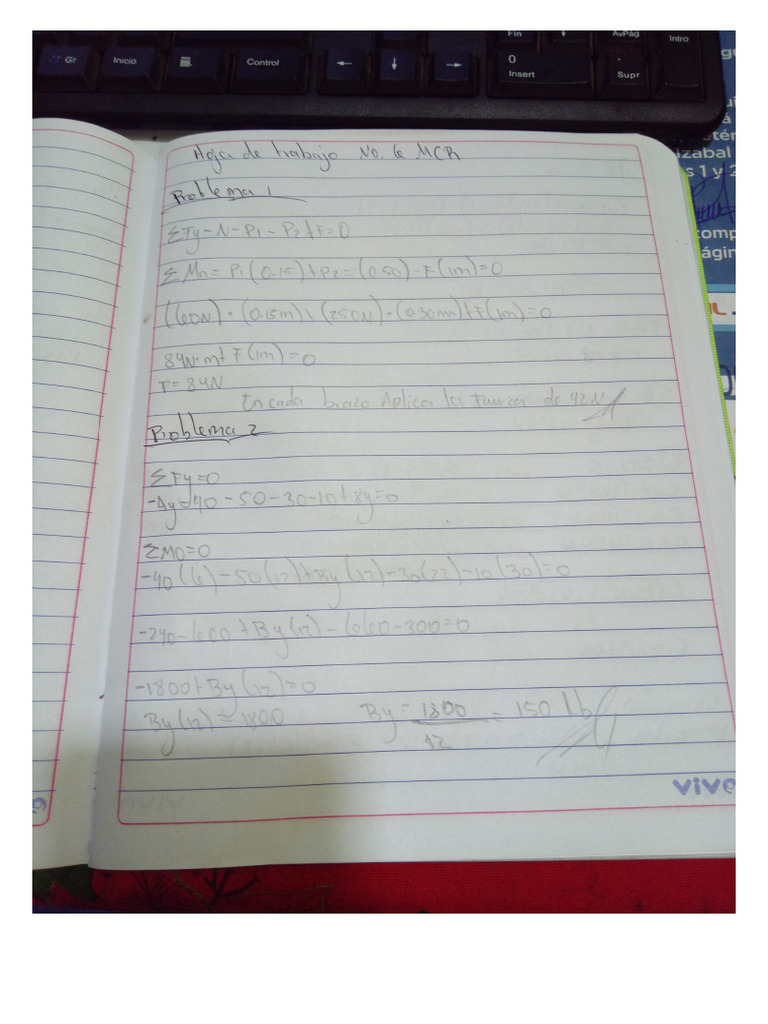 Fin
AvPág
Intro
Gr
Inicio
Control
0
Insert
.
Supr
Hoja de trabajo No. 6 MCR
Problema 1
ΣFy-N-P1-P2+F=0
ΣMn=P1(0.15)+P2=(0.50)-F(1m)=0
(60N)·(0.15m)+(250N)·(0.30m)+F(1m)=0
84N·m+F(1m)=0
F=84N
En cada brazo Aplicar la Fuerza de 42N
Problema 2
ΣFy=0
-Ay=40-50-30-10+By=0
ΣMO=0
-40(6)-50(12)+By(12)-30(22)-10(30)=0
-240-600+By(12)-660-300=0
-1800+By(12)=0
By(12)=1800 By=1800/12=150 lb
izabal
s 1 y 2
vive